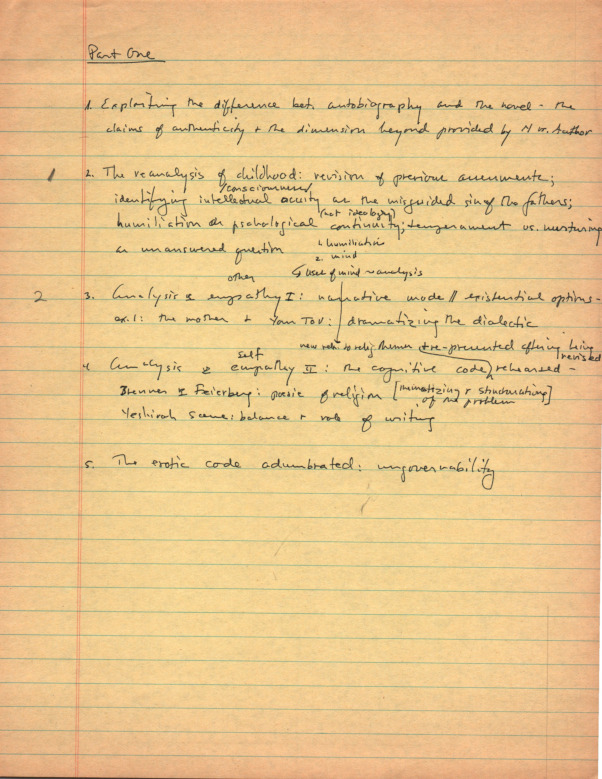 Part One
1. Exploiting the difference betw. autobiography and the novel - the
claims of authenticity + the dimension beyond provided by N vs. Author
1
2. The reanalysis of childhood: revision of previous assessments;
/consciousness/
identifying intellectual acuity as the misguided sin of the fathers;
(not ideology)
humiliation as pschological continuity; temperament vs. nurturing
as unanswered question
1. humiliation
2. mind
other
↳ use of mind → analysis
2
3. Analysis & empathy I: narrative mode // existential options -
ex. 1: the mother + Yom Tov: dramatizing the dialectic
new reln to relig. themes
re-presented after being
revised
self
4. Analysis & empathy II: the cognitive code rehearsed -
Brenner & Feierberg: poesie of religion [thematizing + structuration
of the problem]
Yeshivah scene: balance + role of writing
5. The erotic code adumbrated: ungovernability